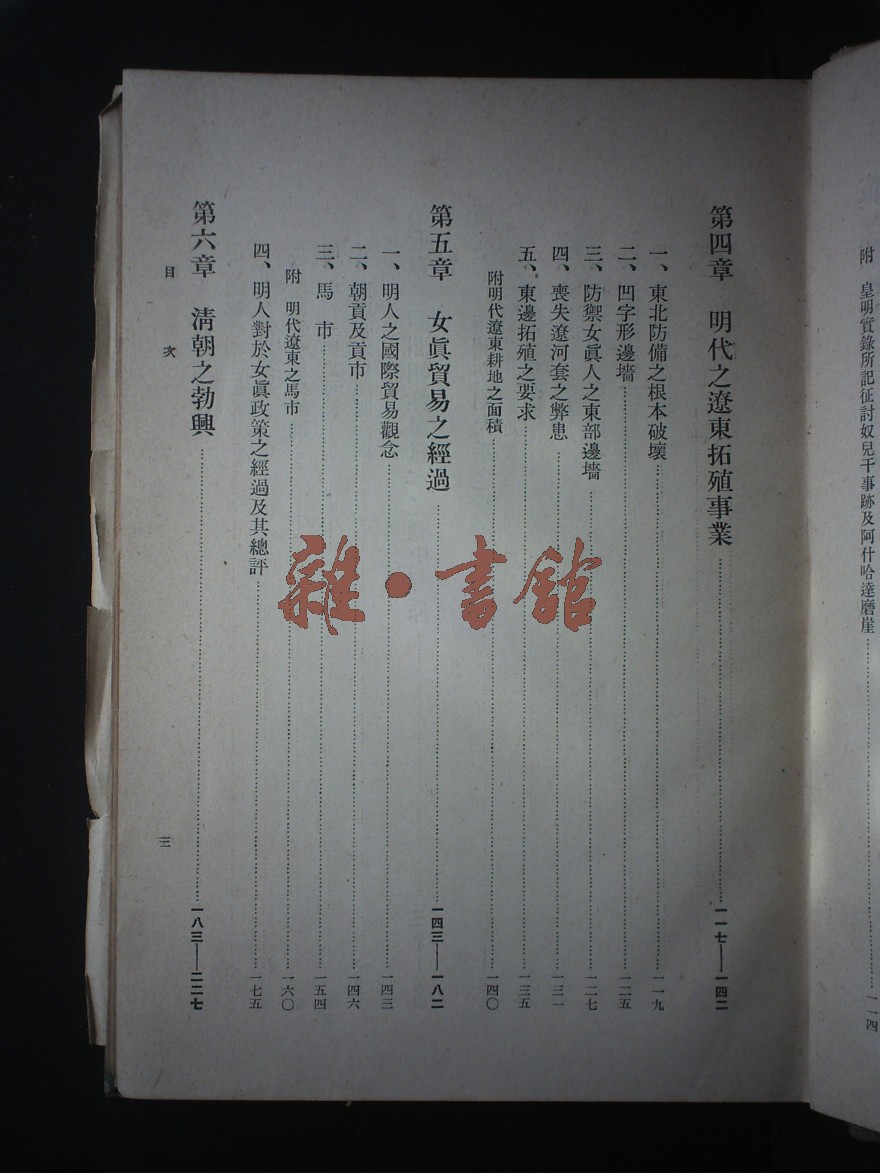 附　皇明實錄所記征討奴兒干事跡及阿什哈達磨崖……一一四
第四章　明代之遼東拓殖事業……一一七——一四二
一、東北防備之根本破壞……一一九
二、凹字形邊墻……一二五
三、防禦女眞人之東部邊墻……一二七
四、喪失遼河套之弊患……一三一
五、東邊拓殖之要求……一三五
附明代遼東耕地之面積……一四〇
第五章　女眞貿易之經過……一四三——一八二
一、明人之國際貿易觀念……一四三
二、朝貢及貢市……一四六
三、馬　市……一五四
附　明代遼東之馬市……一六〇
四、明人對於女眞政策之經過及其總評……一七五
第六章　淸朝之勃興……一八三——二二七
目　次　三
雜·書館